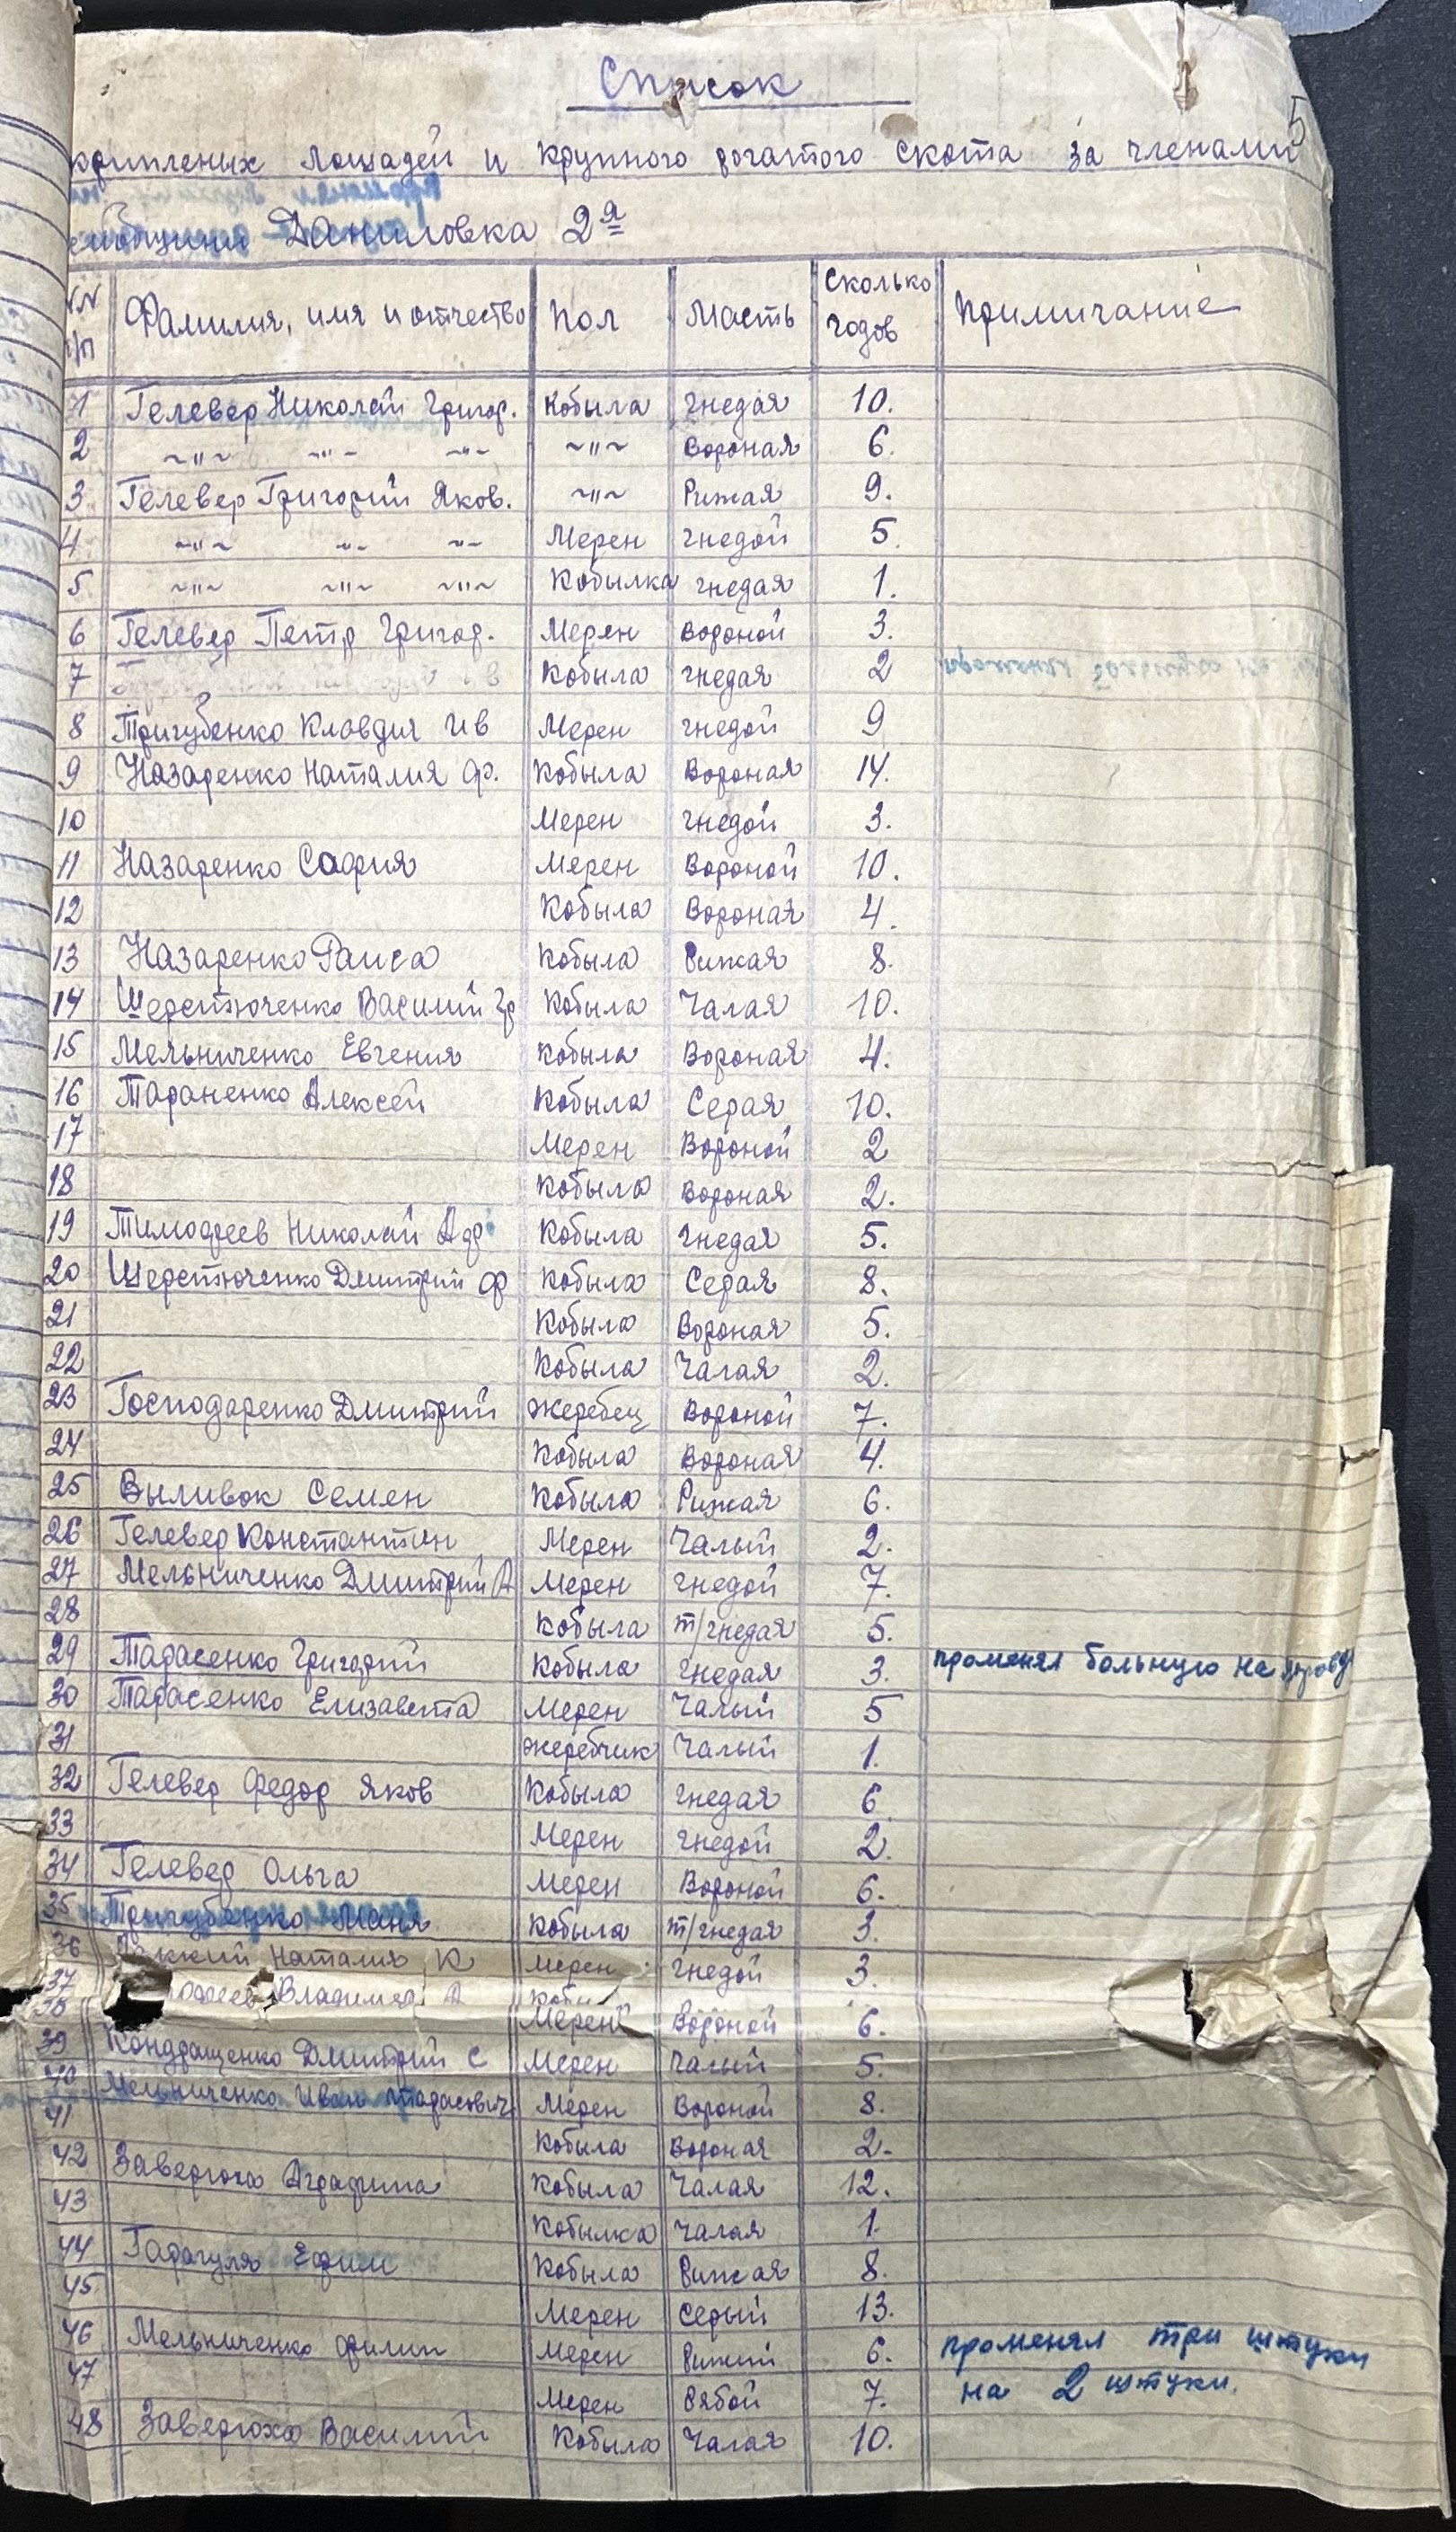 Список
5
лошадей и крупного рогатого скота за членами
Даниловка 2я
NN п/п | Фамилия, имя и отчество | Пол | Масть | Сколько годов | Примичание
1 Гелевер Николай Григор. Кобыла гнедая 10.
2 ~"~ ~"~ ~"~ ~"~ Вороная 6.
3 Гелевер Григорий Яков. ~"~ Рижая 9.
4 ~"~ ~"~ ~"~ Мерен гнедой 5.
5 ~"~ ~"~ ~"~ Кобылка гнедая 1.
6 Гелевер Петр Григор. Мерен Вороной 3.
7 Кобыла гнедая 2
8 Тригубенко Клавдия Ив Мерен гнедой 9
9 Назаренко Наталия Ф. Кобыла Вороная 14.
10 Мерен гнедой 3.
11 Назаренко София Мерен Вороной 10.
12 Кобыла Вороная 4.
13 Назаренко Раиса Кобыла Рижая 8.
14 Шерстюченко Василий Гр Кобыла Чалая 10.
15 Мельниченко Евгения Кобыла Вороная 4.
16 Тараненко Алексей Кобыла Серая 10.
17 Мерен Вороной 2
18 Кобыла Вороная 2.
19 Тимофеев Николай Кобыла гнедая 5.
20 Шерстюченко Дмитрий Ф Кобыла Серая 8.
21 Кобыла Вороная 5.
22 Кобыла Чалая 2.
23 Господаренко Дмитрий жеребец Вороной 7.
24 Кобыла Вороная 4.
25 Выливок Семен Кобыла Рижая 6.
26 Гелевер Константин Мерен Чалый 2.
27 Мельниченко Дмитрий А Мерен гнедой 7.
28 Кобыла т/гнедая 5.
29 Тарасенко Григорий Кобыла гнедая 3. променял больную на
30 Тарасенко Елизавета Мерен Чалый 5
31 жеребчик Чалый 1.
32 Гелевер Федор Яков Кобыла гнедая 6
33 Мерен гнедой 2.
34 Гелевер Ольга Мерен Вороной 6.
35 Тригубенко Маня Кобыла т/гнедая 3.
36 Наталия К Мерен гнедой 3.
37 Владимир А
38 Мерен Вороной 6.
39 Кондращенко Дмитрий С Мерен Чалый 5.
40 Мельниченко Иван Тарасович Мерен Вороной 8.
41 Кобыла Вороная 2-
42 Заверюха Аграфина Кобыла Чалая 12.
43 Кобылка Чалая 1.
44 Гарагуля Ефим Кобыла Рижая 8.
45 Мерен Серый 13.
46 Мельниченко Филип Мерен Рижий 6. променял три штуки
47 Мерен Рябой 7. на 2 штуки.
48 Заверюха Василий Кобыла Чалая 10.